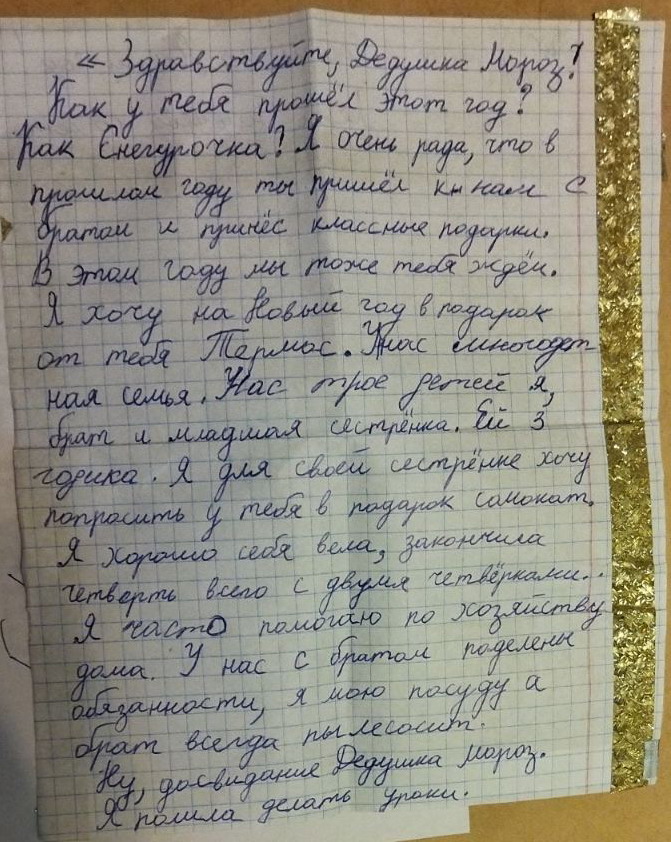 « Здравствуйте, Дедушка Мороз!
Как у тебя прошёл этот год?
Как Снегурочка? Я очень рада, что в
прошлом году ты пришёл к нам с
братом и принёс классные подарки.
В этом году мы тоже тебя ждём.
Я хочу на Новый год в подарок
от тебя Термос. У нас многодет
ная семья. Нас трое детей я,
брат и младшая сестрёнка. Ей 3
годика. Я для своей сестрёнке хочу
попросить у тебя в подарок самокат.
Я хорошо себя вела, закончила
четверть всего с двумя четвёрками.
Я часто помогаю по хозяйству
дома. У нас с братом поделены
обязанности, я мою посуду а
брат всегда пылесосит.
Ну, досвидание Дедушка Мороз.
Я пошла делать уроки.